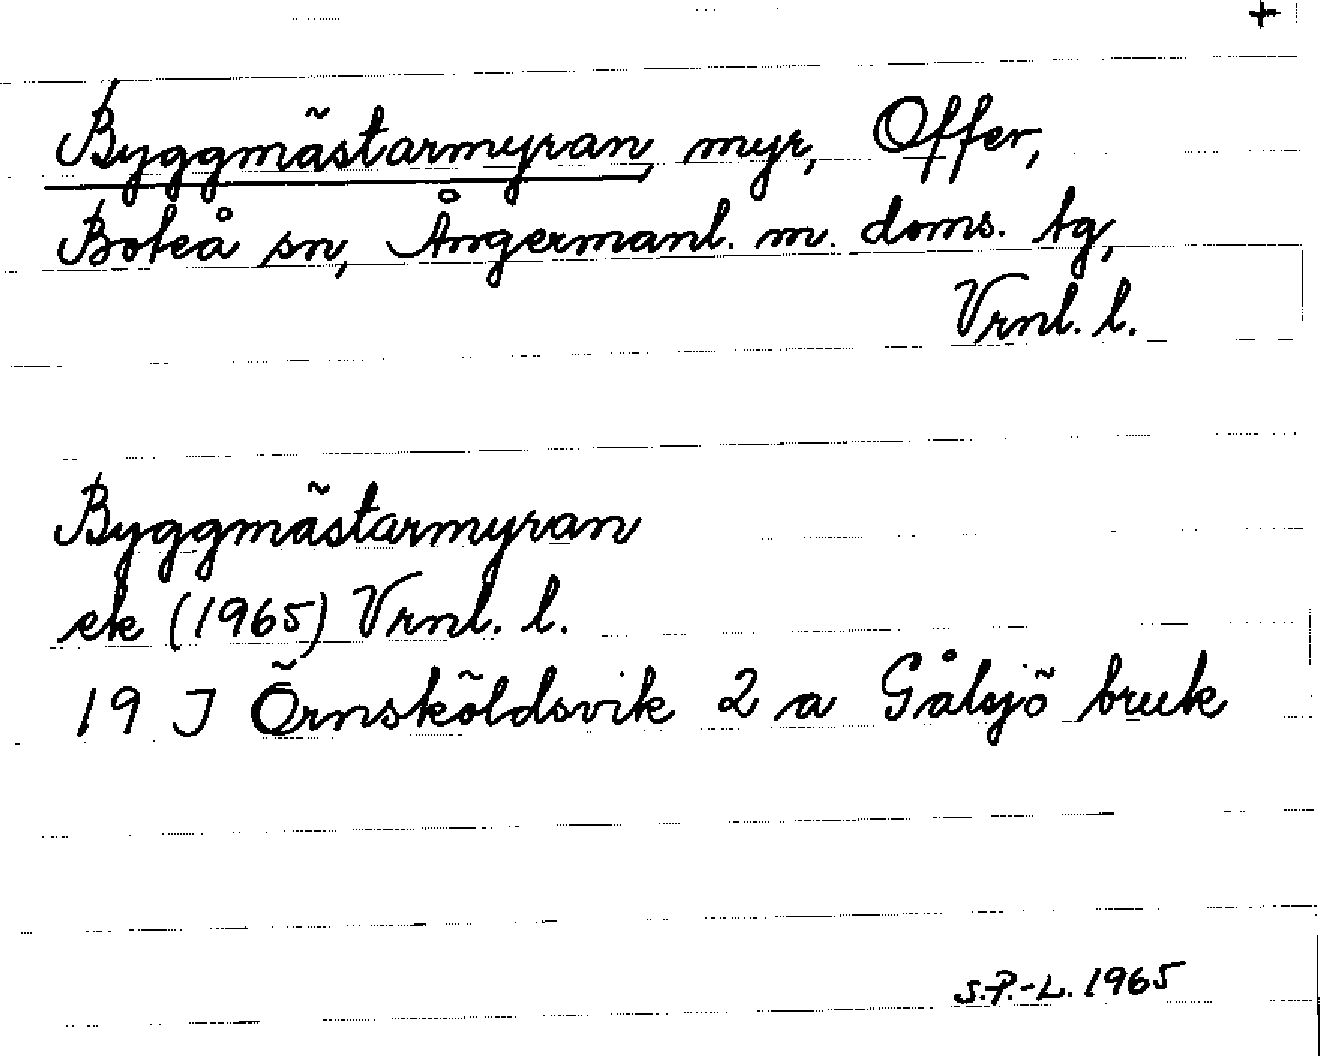 +
Byggmästarmyran, myr, Offer,
Boteå sn, Ångermanl. m. doms. tg,
Vrnl. l.
Byggmästarmyran
ek (1965) Vrnl. l.
19 J Örnsköldsvik 2 a Gålsjö bruk
S.P.-L. 1965